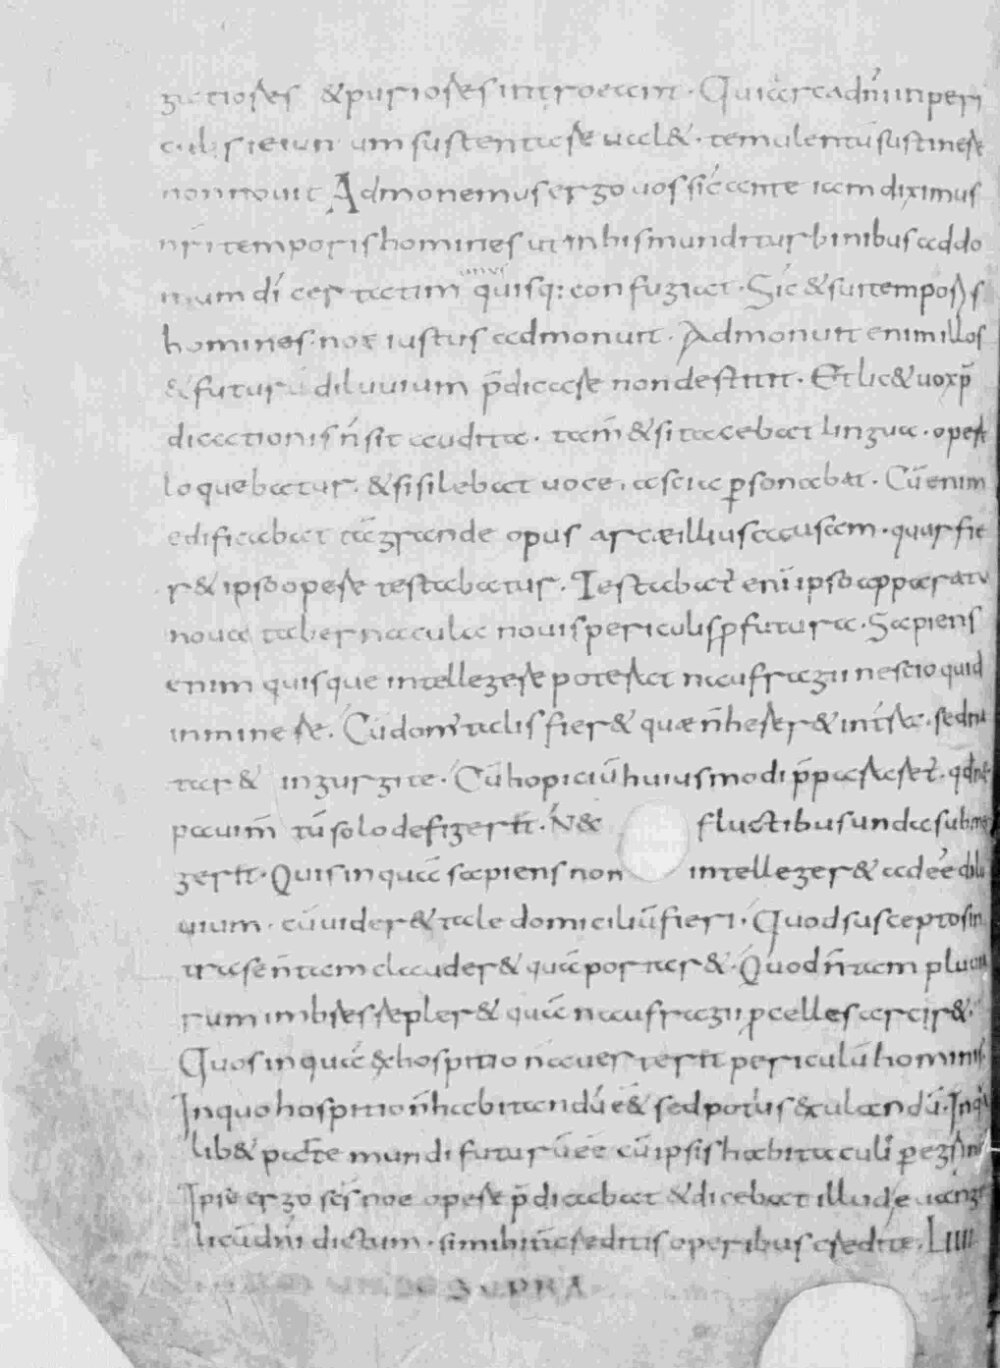 & puriores introeam. Qui a arca dñi in peri
culis ieiunium sustentare ual&. temulentū sustinere
non nouit Admonemus ergo uos sic ante iam diximus
nr̄i temporis homines ut in his mundi turbinibus ad do
mum dī certatim unusquisq: confugiat. Sic & sui temporis
homines noe iustus admonuit. Admonuit enim illos
& futurū diluuium p̄dicare non destitit. Et lic& uox p̄
dicationis ñ sit audita. tam̄ & si tacebat lingua. opere
loquebatur. & si silebat uoce. arca personabat. Cū enim
edificabat tā grande opus arcæ illius causam. quar fie
r& ipso opere testabatur. Testabat̄ enī ipso apparatu
noua tabernacula nouis periculis p futura. Sapiens
enim quisque intellegere poterat naufragii nescio quid
inminere. Cū dom' talis fier& quæ ñ herer& in t'ra. sed na
tar& in gurgite. Cū hopiciū huiusmodi p̄parar&.
pauim̄ tū solo defiger̄t. N & fluctibus unda subme
ger̄t. Quis inquā sapiens non intelleger& adeē dilu
uium. cū uider& tale domiciliū fieri. Quod susceptos in
trare ñ tam clauder& quā portar&. Quod ñ tam pluuia
rum imbres sepler& quā naufragii pcelles arcir&.
Quos inquā & hospitio ñ auerter̄t periculū hominū
In quo hospitio ñ habitandū ē & sed pot'us exulandū. In q
lib& parte mundi futurū eē cū ipsis habitaculi
Ipse ergo scs̄ noe opere p̄dicabat & dicebat illud euange
licū dn̄i dictum. si mihi ñ creditis operibus credite. LIIII
SUPRA